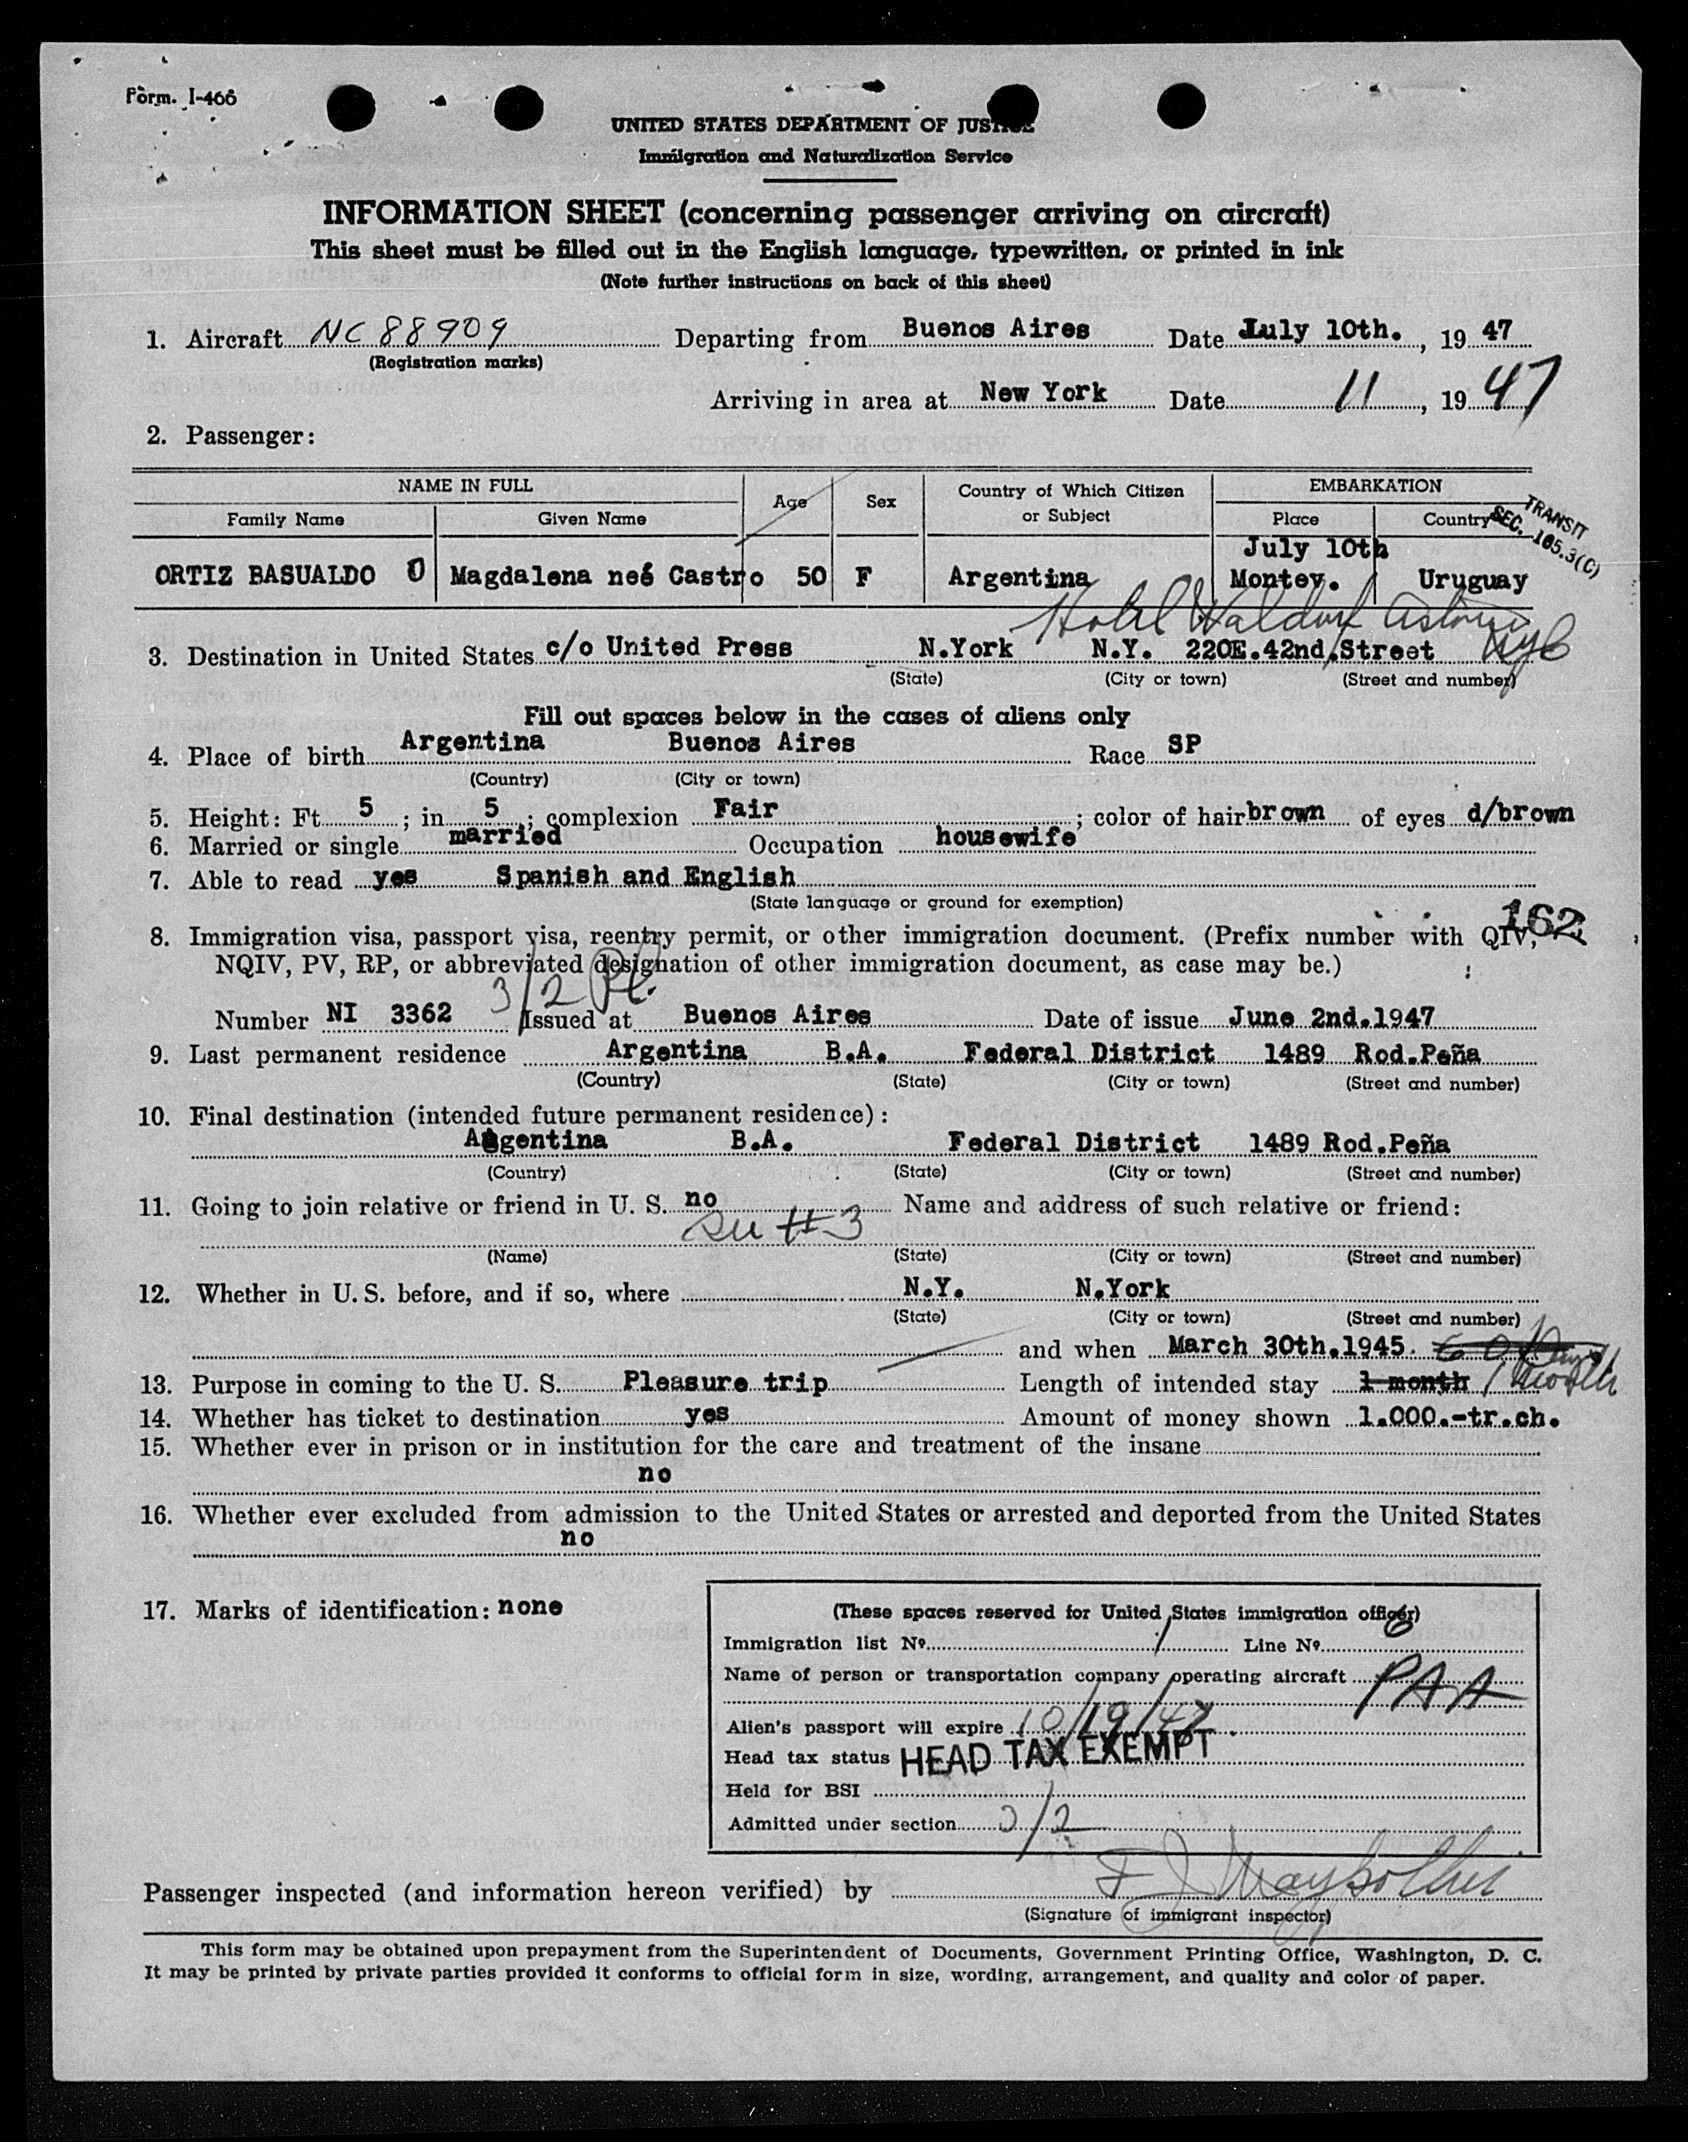 Form. I-466
UNITED STATES DEPARTMENT OF JUSTICE
Immigration and Naturalization Service
INFORMATION SHEET (concerning passenger arriving on aircraft)
This sheet must be filled out in the English language, typewritten, or printed in ink
(Note further instructions on back of this sheet)
1. Aircraft NC 88909 Departing from Buenos Aires Date July 10th. , 19 47
(Registration marks)
Arriving in area at New York Date 11 , 19 47
2. Passenger:
NAME IN FULL Age Sex Country of Which Citizen or Subject EMBARKATION
Family Name Given Name Place Country
TRANSIT
SEC. 165.3(C)
July 10th
ORTIZ BASUALDO O Magdalena neé Castro 50 F Argentina Montev. Uruguay
Hotel Waldorf Astoria NYC
3. Destination in United States c/o United Press N.York N.Y. 220E.42nd.Street
(State) (City or town) (Street and number)
Fill out spaces below in the cases of aliens only
4. Place of birth Argentina Buenos Aires Race SP
(Country) (City or town)
5. Height: Ft 5 ; in 5 ; complexion Fair ; color of hair brown of eyes d/brown
6. Married or single married Occupation housewife
7. Able to read yes Spanish and English
(State language or ground for exemption)
162
8. Immigration visa, passport visa, reentry permit, or other immigration document. (Prefix number with QIV,
NQIV, PV, RP, or abbreviated designation of other immigration document, as case may be.)
3/2
Number NI 3362 Issued at Buenos Aires Date of issue June 2nd.1947
9. Last permanent residence Argentina B.A. Federal District 1489 Rod.Peña
(Country) (State) (City or town) (Street and number)
10. Final destination (intended future permanent residence):
Argentina B.A. Federal District 1489 Rod.Peña
(Country) (State) (City or town) (Street and number)
11. Going to join relative or friend in U. S. no Name and address of such relative or friend:
#3
(Name) (State) (City or town) (Street and number)
12. Whether in U. S. before, and if so, where N.Y. N.York
(State) (City or town) (Street and number)
and when March 30th.1945.
13. Purpose in coming to the U. S. Pleasure trip Length of intended stay 1 month 1 Month
14. Whether has ticket to destination yes Amount of money shown 1.000.-tr.ch.
15. Whether ever in prison or in institution for the care and treatment of the insane
no
16. Whether ever excluded from admission to the United States or arrested and deported from the United States
no
17. Marks of identification: none
(These spaces reserved for United States immigration officer)
Immigration list No. 1 Line No. 6
Name of person or transportation company operating aircraft PAA
Alien's passport will expire 10/19/47.
Head tax status HEAD TAX EXEMPT
Held for BSI
Admitted under section 3/2
Passenger inspected (and information hereon verified) by
(Signature of immigrant inspector)
This form may be obtained upon prepayment from the Superintendent of Documents, Government Printing Office, Washington, D. C.
It may be printed by private parties provided it conforms to official form in size, wording, arrangement, and quality and color of paper.